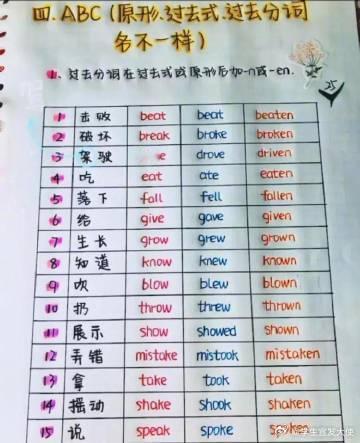 四. ABC (原形.过去式.过去分词
各不一样)
1、过去分词在过去式或原形后加-n或-en.
25
1 击败 beat beat beaten
2 破坏 break broke broken
3 驾驶 e drove driven
4 吃 eat ate eaten
5 落下 fall fell fallen
6 给 give gave given
7 生长 grow grew grown
8 知道 know knew known
9 吹 blow blew blown
10 扔 throw threw thrown
11 展示 show showed shown
12 弄错 mistake mistook mistaken
13 拿 take took taken
14 摇动 shake shook shaken
15 说 speak spoke spoken
学生宣发大使